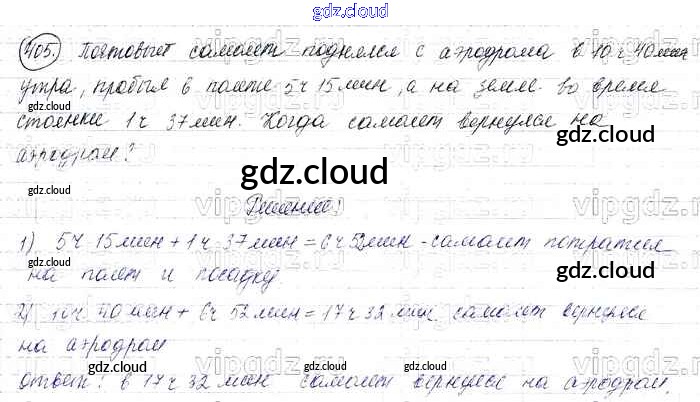 gdz.cloud
405. Почтовый самолет поднялся с аэродрома в 10 ч 40 мин
утра, пробыл в полете 5ч 15мин, а на земле во время
gdz.cloud
стоянки 1ч 37мин. Когда самолет вернулся на
gdz.cloud
gdz.cloud
аэродром?
gdz.cloud
gdz.cloud
Решение:
1) 5ч 15мин + 1ч 37мин = 6ч 52мин - самолет потратил
на полет и посадку.
gdz.cloud
gdz.cloud
2) 10ч 40мин + 6ч 52мин = 17ч 32мин самолет вернулся
на аэродром
gdz.cloud
gdz.cloud
ответ: в 17ч 32 мин самолет вернулся на аэродром.